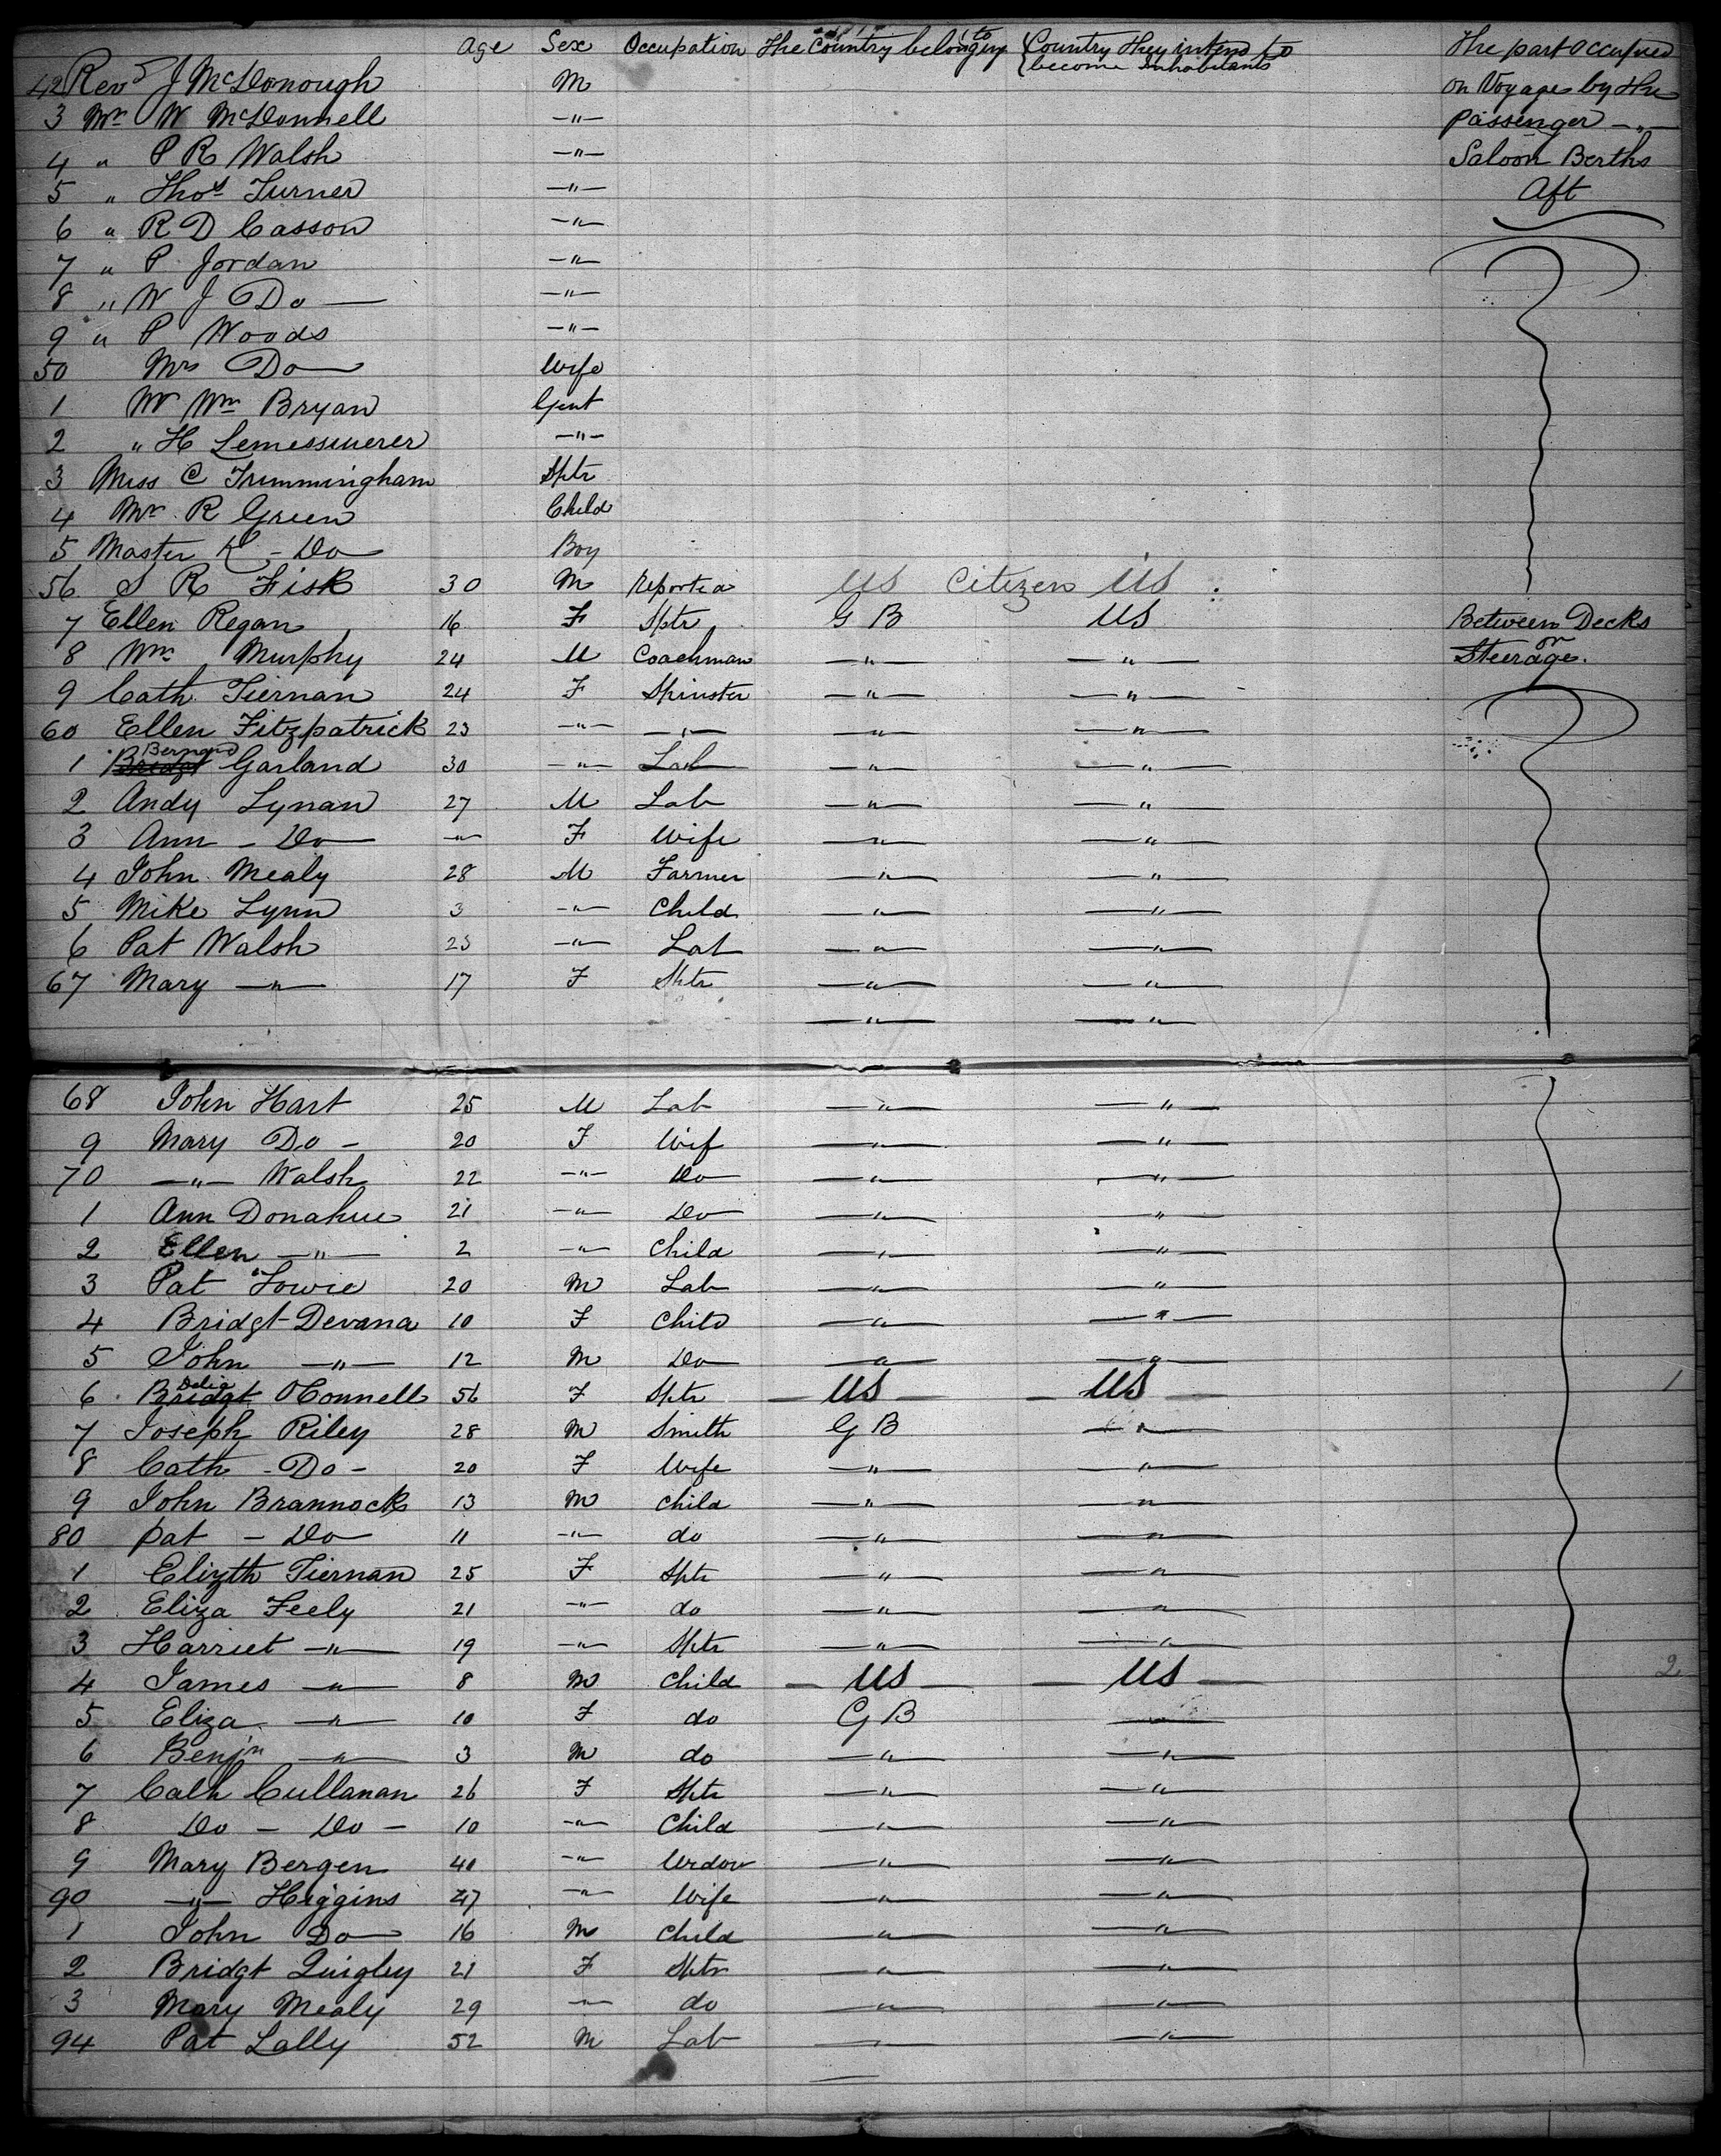 Age Sex Occupation The Country belonging to Country they intend to become Inhabitants The part occupied
42 Revd J McDonough M on Voyage by the
3 Mr W McDonnell —"— Passenger —"—
4 " P R Walsh —"— Saloon Berths
5 " Thos Turner —"— Aft
6 " R D Casson —"—
7 " P. Jordan —"—
8 " W J Do —"—
9 " P Woods —"—
50 Mrs Do Wife
1 Mr Wm Bryan Gent
2 " H Lemessuerer —"—
3 Miss C Trimmingham Sptr
4 Mr R Green Child
5 Master K - Do Boy
56 S R Fisk 30 M US Citizen US
7 Ellen Regan 16 F Sptr G B US Between Decks
8 Wm Murphy 24 M Coachman —"— —"— or Steerage.
9 Cath Tiernan 24 F Spinster —"— —"—
60 Ellen Fitzpatrick 23 —"— —"— —"— —"—
1 Bridgt Bernard Garland 30 —"— Lab —"— —"—
2 Andy Lynan 27 M Lab —"— —"—
3 Ann - Do —"— F Wife —"— —"—
4 John Mealy 28 M Farmer —"— —"—
5 Mike Lynn 3 —"— Child —"— —"—
6 Pat Walsh 23 —"— Lab —"— —"—
67 Mary —"— 17 F Sptr —"— —"—
—"— —"—
68 John Hart 25 M Lab —"— —"—
9 Mary Do - 20 F Wif —"— —"—
70 —"— Walsh 22 —"— Do —"— —"—
1 Ann Donahue 21 —"— Do —"— —"—
2 Ellen —"— 2 —"— Child —"— —"—
3 Pat Towie 20 M Lab —"— —"—
4 Bridgt Devana 10 F Child —"— —"—
5 John —"— 12 M Do —"— —"—
6 Bridgt Delia OConnell 56 F Sptr US US 1
7 Joseph Riley 28 M Smith G B —"—
8 Cath - Do - 20 F Wife —"— —"—
9 John Brannock 13 M Child —"— —"—
80 Pat - Do 11 —"— do —"— —"—
1 Elizth Tiernan 25 F Sptr —"— —"—
2 Eliza Feely 21 —"— do —"— —"—
3 Harriet —"— 19 —"— Sptr —"— —"—
4 James —"— 8 M Child US US 2
5 Eliza —"— 10 F do G B —"—
6 Benjn —"— 3 M do —"— —"—
7 Cath Cullanan 26 F Sptr —"— —"—
8 Do - Do - 10 —"— Child —"— —"—
9 Mary Bergen 40 —"— Widow —"— —"—
90 —"— Higgins 47 —"— Wife —"— —"—
1 John Do 16 M Child —"— —"—
2 Bridgt Quigley 21 F Sptr —"— —"—
3 Mary Mealy 29 —"— do —"— —"—
94 Pat Lally 52 M Lab —"— —"—